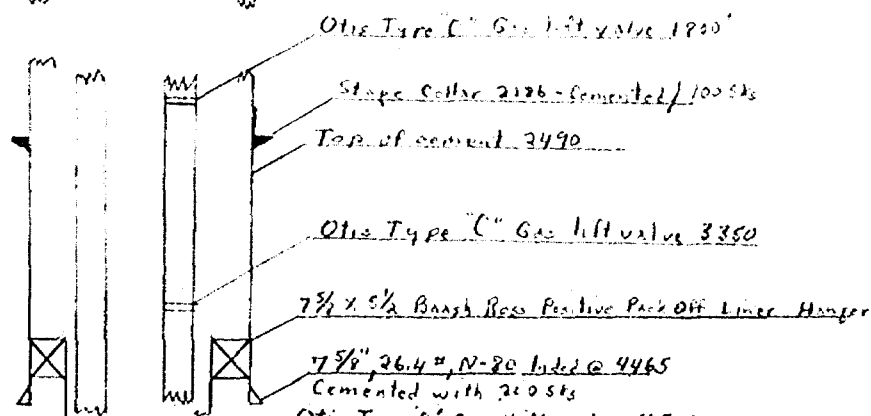 Otis Type "C" Gas lift valve 1800'
Stage Collar 2186 - Cemented / 100 sks
Top of cement 2490
Otis Type "C" Gas lift valve 3350
7 5/8 x 5 1/2 Positive Pack Off Liner Hanger
7 5/8", 26.4 #, N-80 @ 4465
Cemented with 210 sks
Otis Type "C"